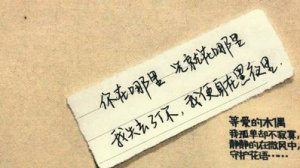 你在哪里 光就在哪里
我失去了你，我便身在黑夜里
等爱的木偶
我孤单却不寂寞
静静的在微风中
守护花语……